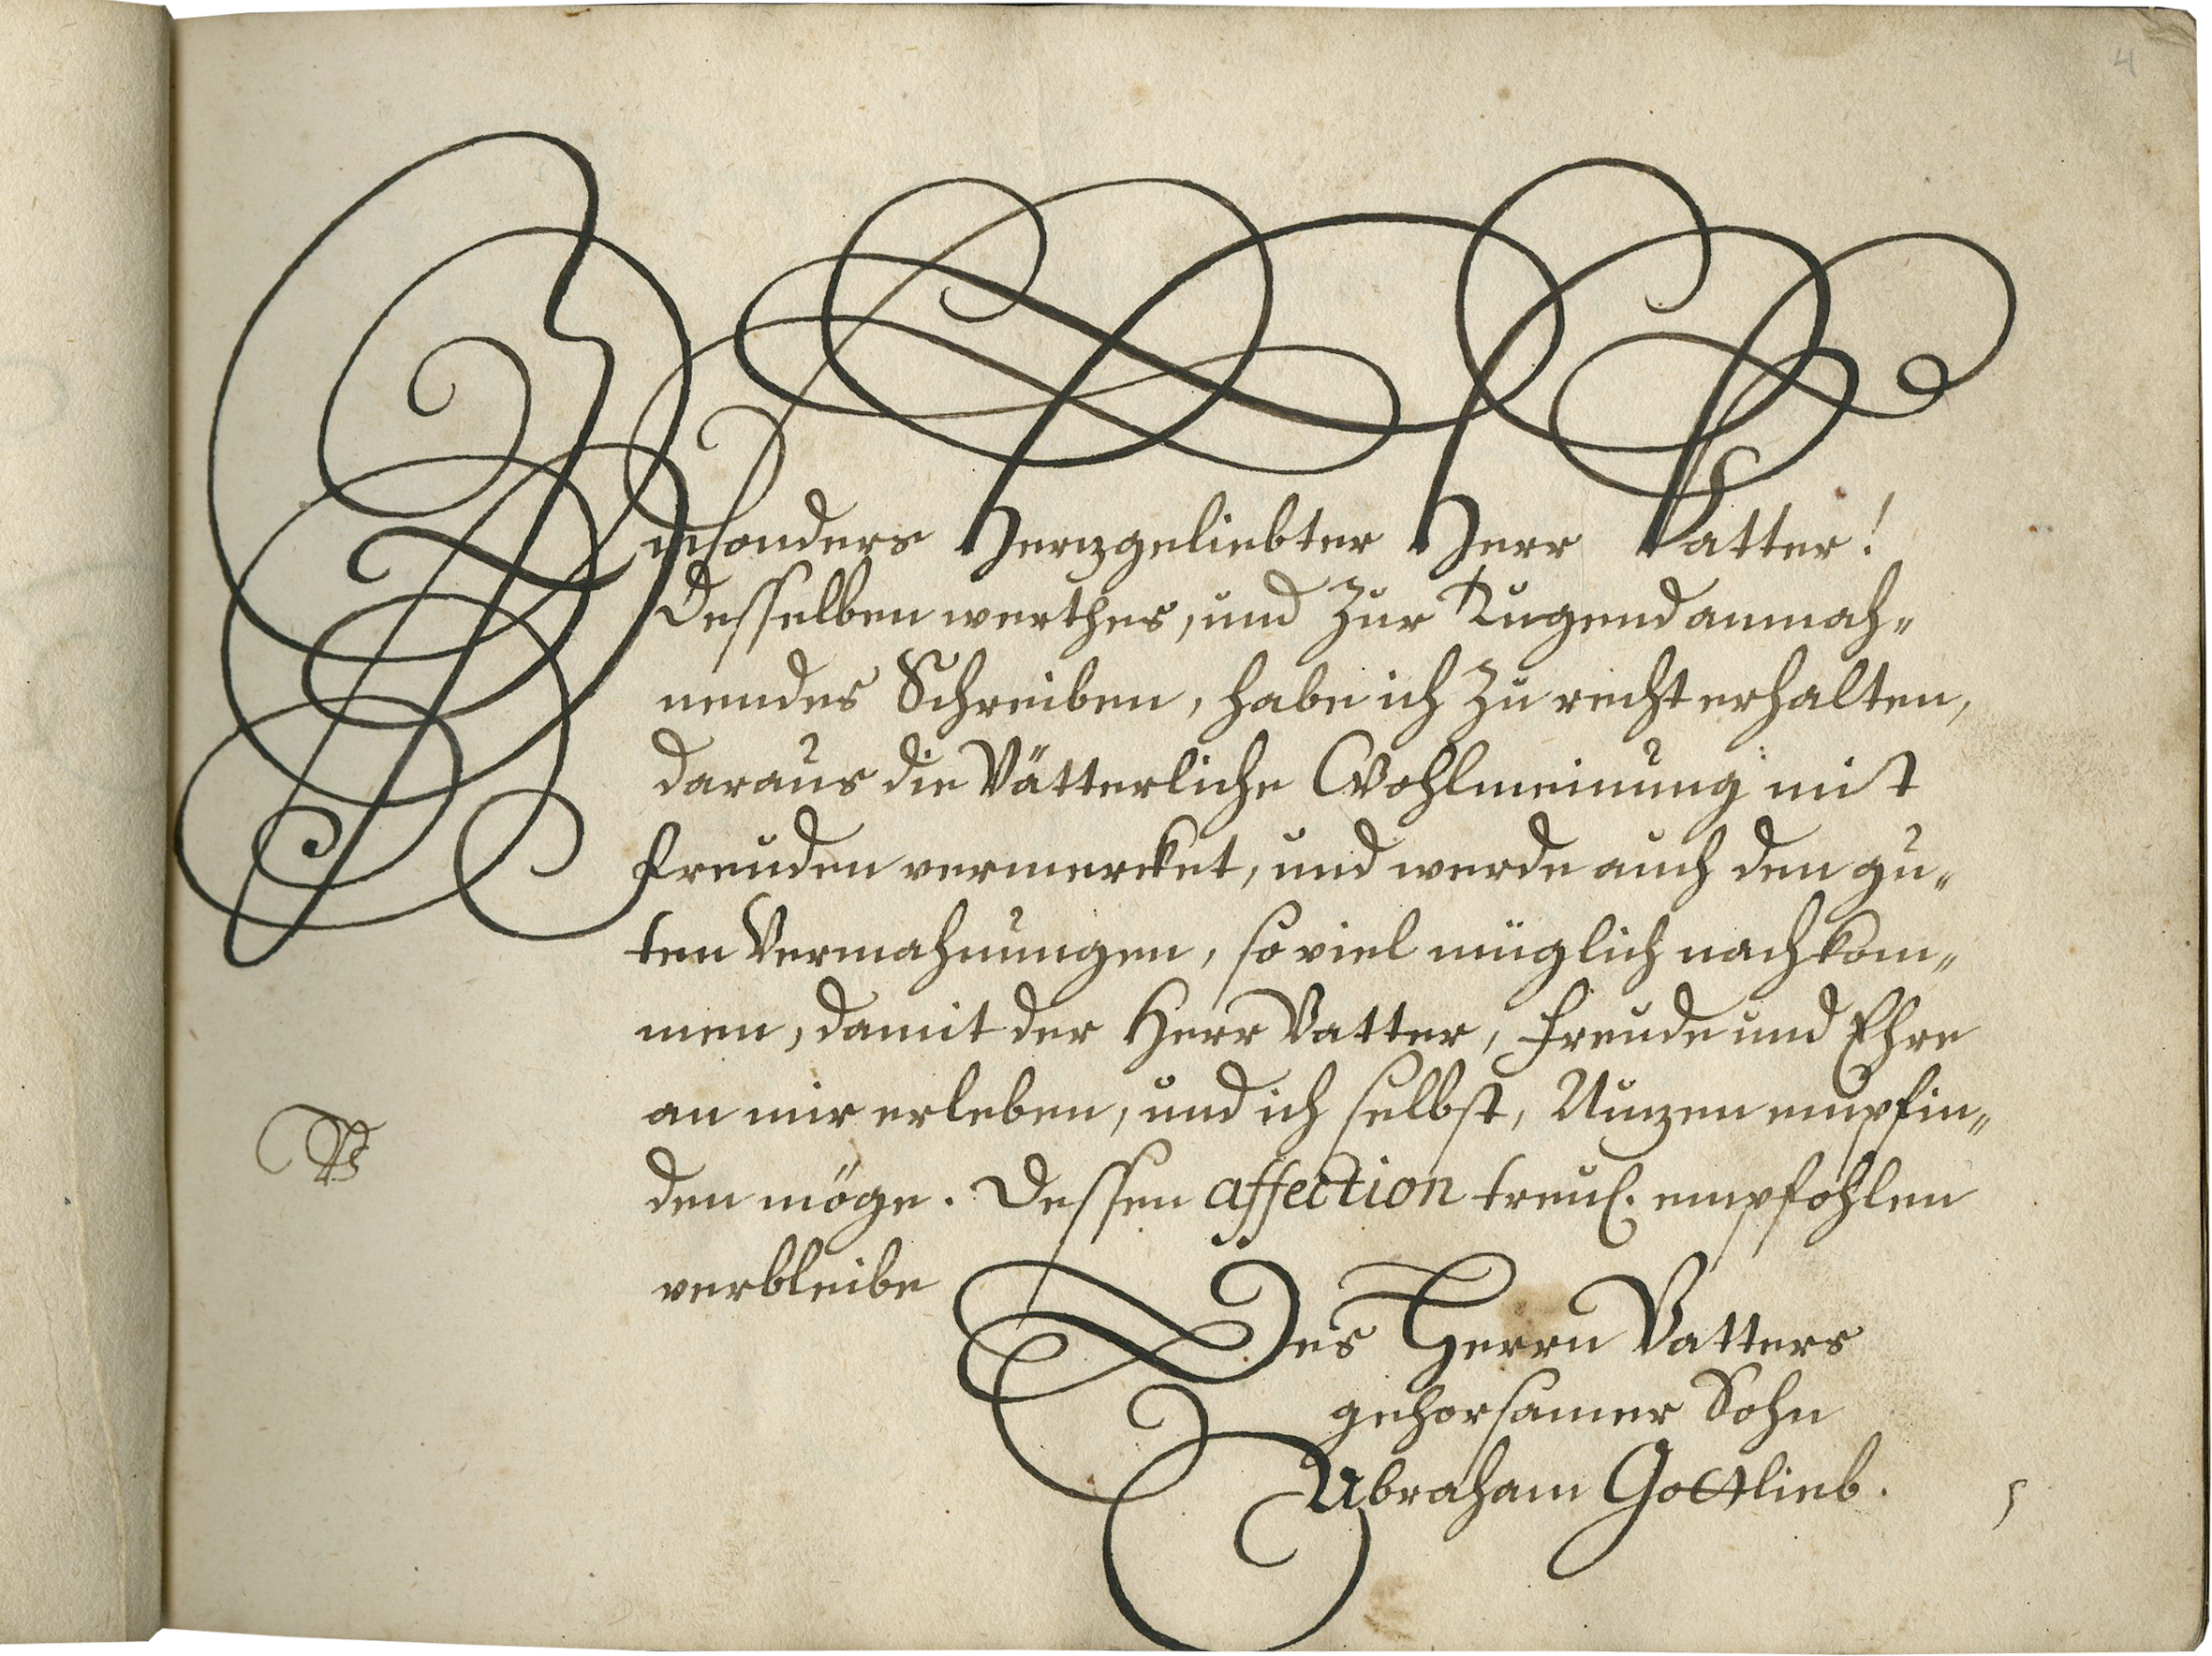 4
Insonders Herzgeliebter Herr Vatter!
Desselben werthes, und zur Tugend anmah-
nendes Schreiben, habe ich zu recht erhalten,
daraus die Vätterliche Wohlmeinung mit
freuden vermercket, und werde auch den gu-
ten Vermahnungen, so viel müglich nachkom-
men, damit der Herr Vatter, freude und Ehre
an mir erleben, und ich selbst, Nutzen empfin-
den möge. Dessen affection treul. empfohlen
verbleibe
Des Herrn Vatters
gehorsamer Sohn
Abraham Gottlieb.